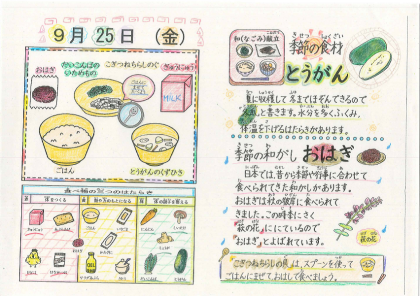 9月25日（金）
おはぎ
だいこんばの
いためもの
こぎつねちらしのぐ
ぎゅうにゅう
MILK
ごはん
とうがんのくずひき
食べ物の三つのはたらき
和(なごみ)献立
季節の食材
とうがん
夏に収穫して冬までほぞんできるので
と書きます。水分を多くふくみ、
体温を下げるはたらきがあります。
季節の和がし おはぎ
日本では、昔から季節や行事に合わせて
食べられてきた和がしがあります。
おはぎは秋の彼岸に食べられて
きました。この時季にさく
萩の花 ににているので
"おはぎ"とよばれています。
萩の花
「こぎつねちらしの具」は、スプーンを使って
ごはんにまぜておはしで食べましょう。